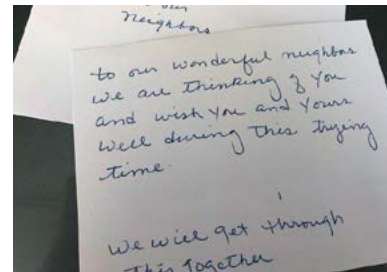 our
neighbors
to our wonderful neighbors
we are thinking of you
and wish you and yours
well during this trying
time.
we will get through
this together